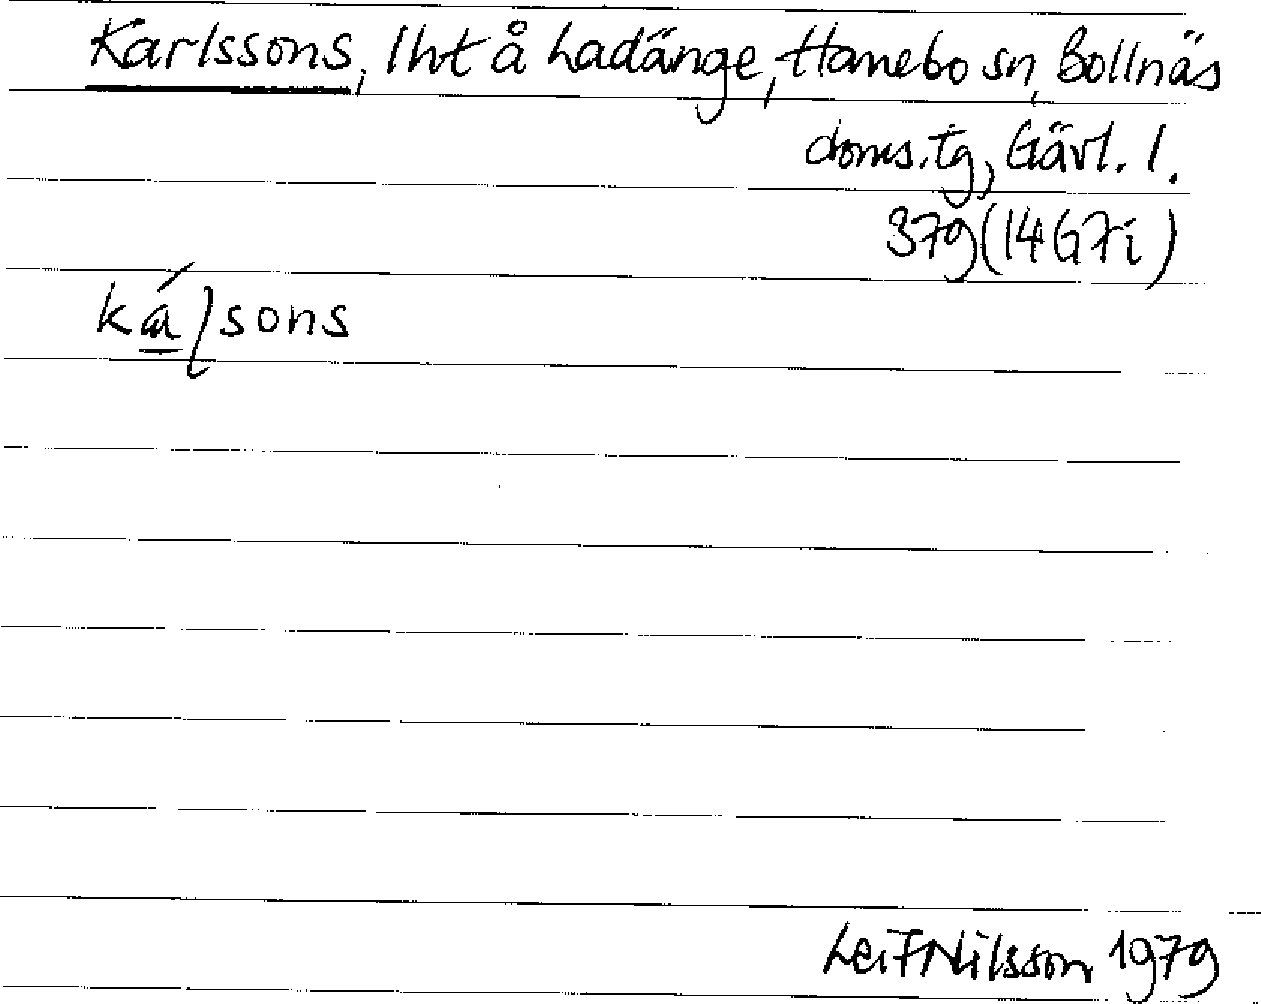 Karlssons, lht å Ladänge, Hanebo sn, Bollnäs
doms.tg, Gävl. l.
37g (14G7i)
ká̳ɭsons
Leif Nilsson 1979